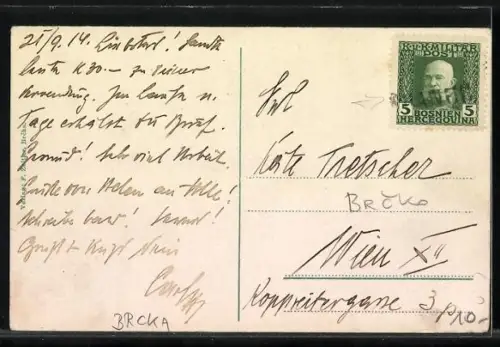 21/9. 14. Liebstes! Sandte
heute K 30.– zu Deiner
Verwendung. Im Laufe n.
Tage erhältst Du Brief.
Gesund! Sehr viel Arbeit.
Grüße von Helen an Alle!
Schreibe bald!
Gruß u. Kuß Dein
K.u.K. MILITÄR
POST
5 5
BOSNIEN
HERCEGOVINA
Frl
Käte Tretscher
BRČKO
Wien XII
Koppreitergasse 3
P10-
BRCKA